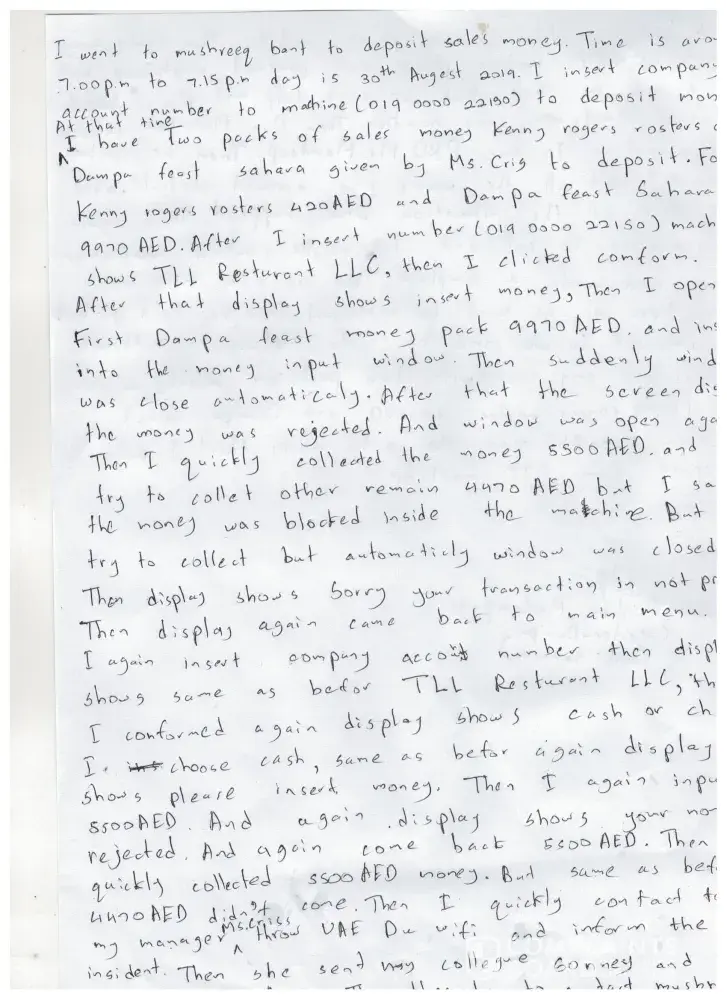 I went to mushreeq bant to deposit sales money. Time is aro
7.00p.m to 7.15 p.m day is 30th Augest 2019. I insert company
account number to mathine (019 0000 22150) to deposit mon
At that time
I have Two packs of sales money Kenny rogers rosters
Dampa feast sahara given by Ms. Cris to deposit. Fo
Kenny rogers rosters 420AED and Dampa feast Sahara
9970 AED. After I insert number (019 0000 22150) mach
shows TLL Resturant LLC, then I clicked comform.
After that display shows insert money, Then I open
First Dampa feast money pack 9970 AED. and ins
into the money input window. Then suddenly wind
was close automaticaly. After that the screen dis
the money was rejected. And window was open aga
Then I quickly collected the money 5500 AED. and
try to collet other remain 4470 AED but I sa
the money was blocked inside the matchine. But
try to collect but automaticly window was closed
Then display shows Sorry your transaction is not pr
Then display again came back to main menu.
I again insert company accout number then displ
shows same as befor TLL Resturant LLC, th
I conformed again display shows cash or ch
I choose cash, same as befor again display
shows please insert money. Then I again inpu
5500AED. And again display shows your mo
rejected. And again come back 5500 AED. Then
quickly collected 5500 AED money. But same as bef
4470 AED didn't come. Then I quickly contact to
my manager Ms.Criss throw UAE Du wifi and inform the
insident. Then she sent my collegue Sonney and